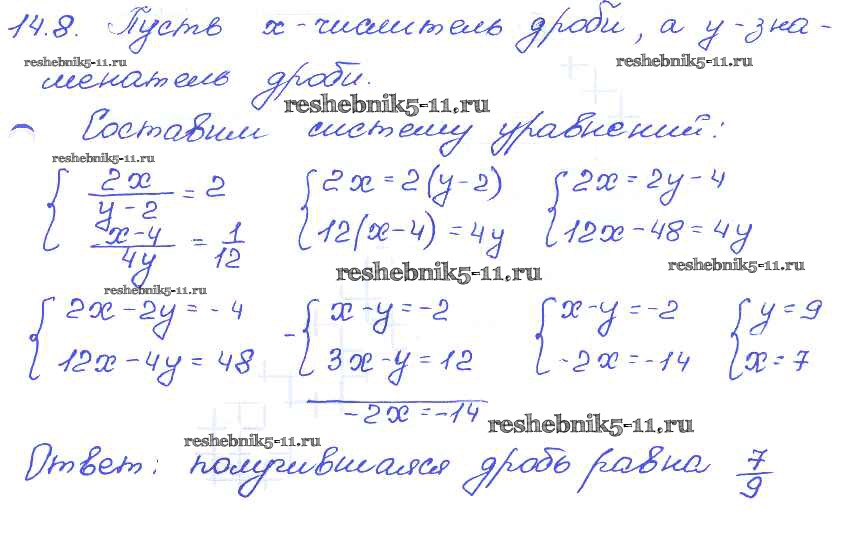 14.8. Пусть x - числитель дроби, а y - зна-
reshebnik5-11.ru reshebnik5-11.ru
менатель дроби.
reshebnik5-11.ru
Составим систему уравнений:
reshebnik5-11.ru
{ 2x/(y-2) = 2 { 2x = 2(y-2) { 2x = 2y - 4
{ (x-4)/4y = 1/12 { 12(x-4) = 4y { 12x - 48 = 4y
reshebnik5-11.ru reshebnik5-11.ru
reshebnik5-11.ru
{ 2x - 2y = -4 - { x - y = -2 { x - y = -2 { y = 9
{ 12x - 4y = 48 { 3x - y = 12 { -2x = -14 { x = 7
-2x = -14
reshebnik5-11.ru reshebnik5-11.ru
Ответ: получившаяся дробь равна 7/9